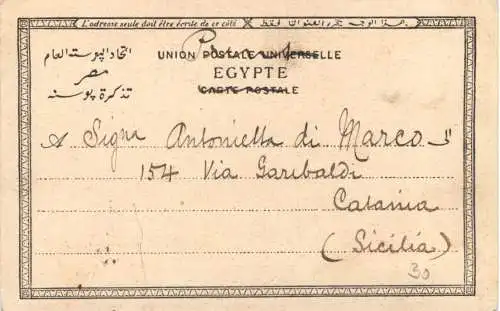 L'adresse seule doit être écrite de ce côté
اتحاد البوستة العام
مصر
تذكرة بوسته
UNION POSTALE UNIVERSELLE
EGYPTE
CARTE POSTALE
A Signa Antonietta di Marco
154 Via Garibaldi
Catania
(Sicilia)
30